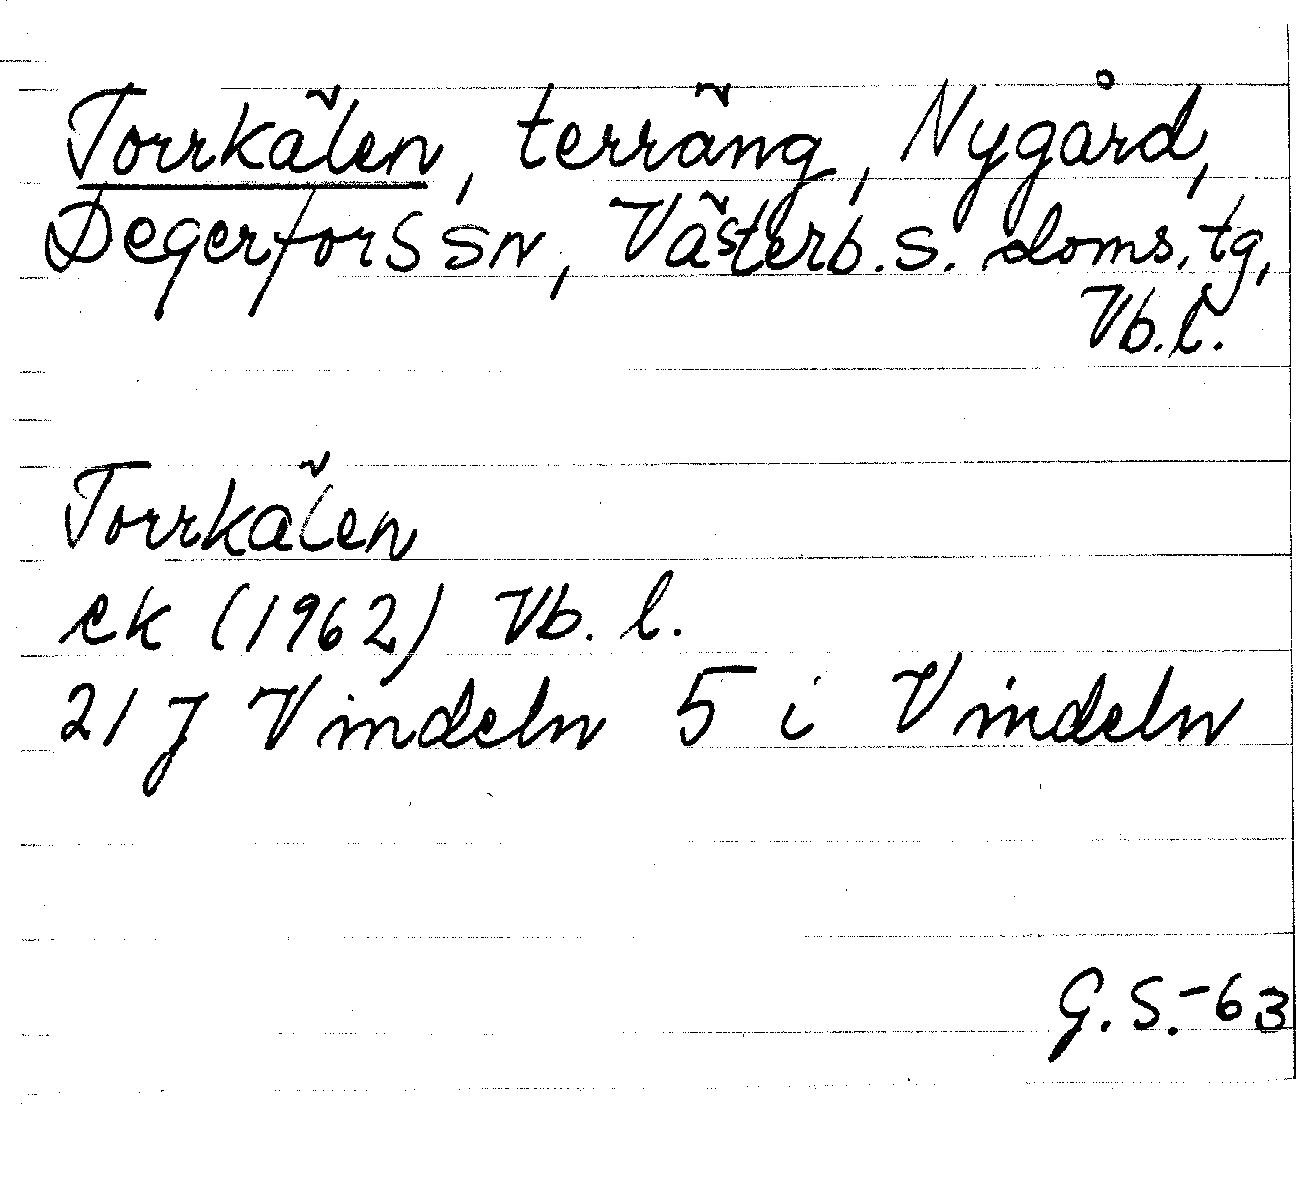 Torrkälen, terräng, Nygård,
Degerfors sn, Västerb. s. doms. tg,
Vb. l.
Torrkälen
ek (1962) Vb. l.
21 J Vindeln 5 i Vindeln
G. S. -63